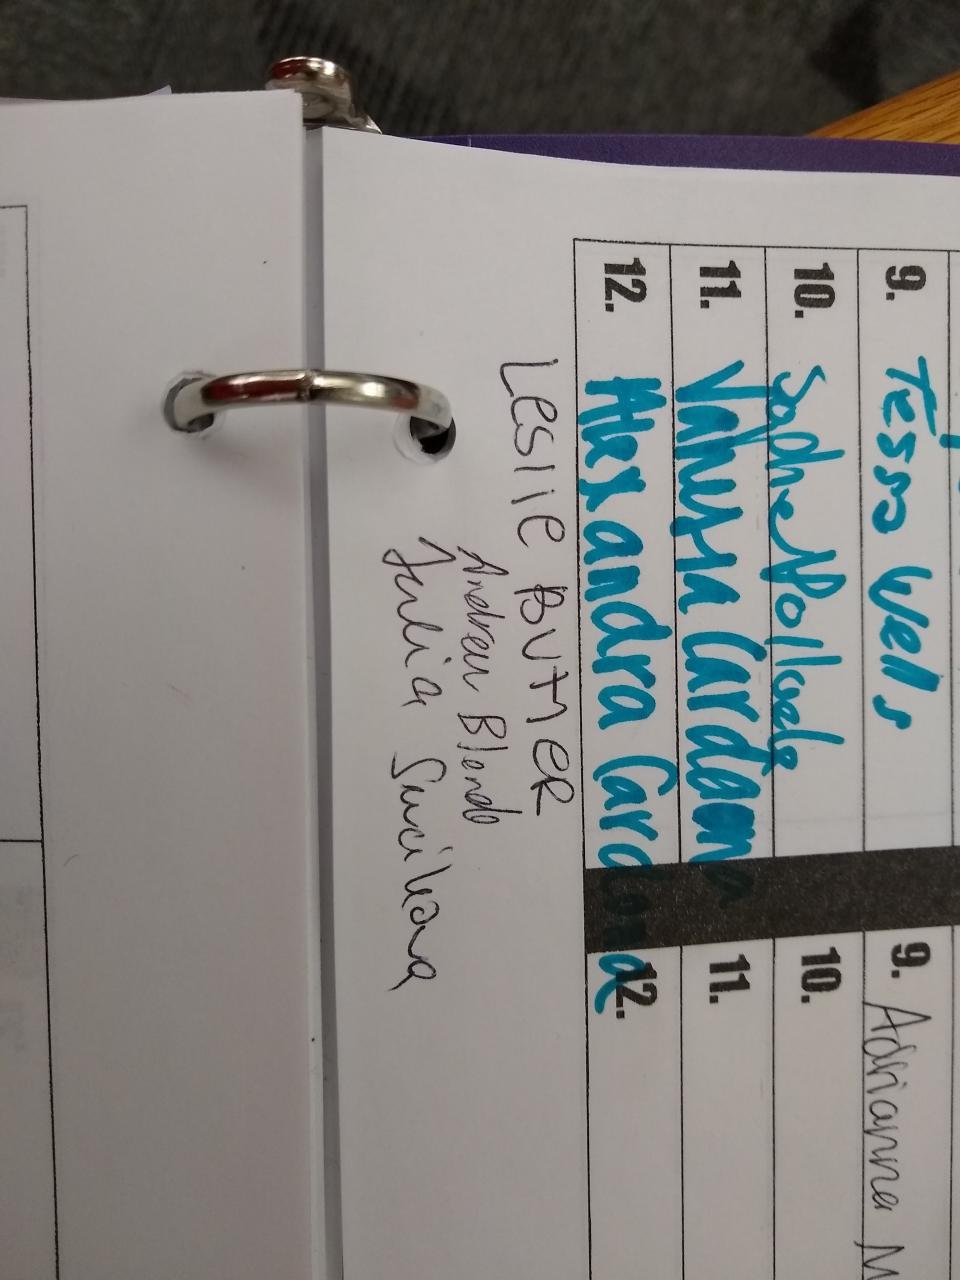 9. Tessa Wells
10. Sophie
11. Vanessa Cardona
12. Alexandra Cardona
Leslie Butler
Andrew Blendo
Julia
9. Adrianna M
10.
11.
12.